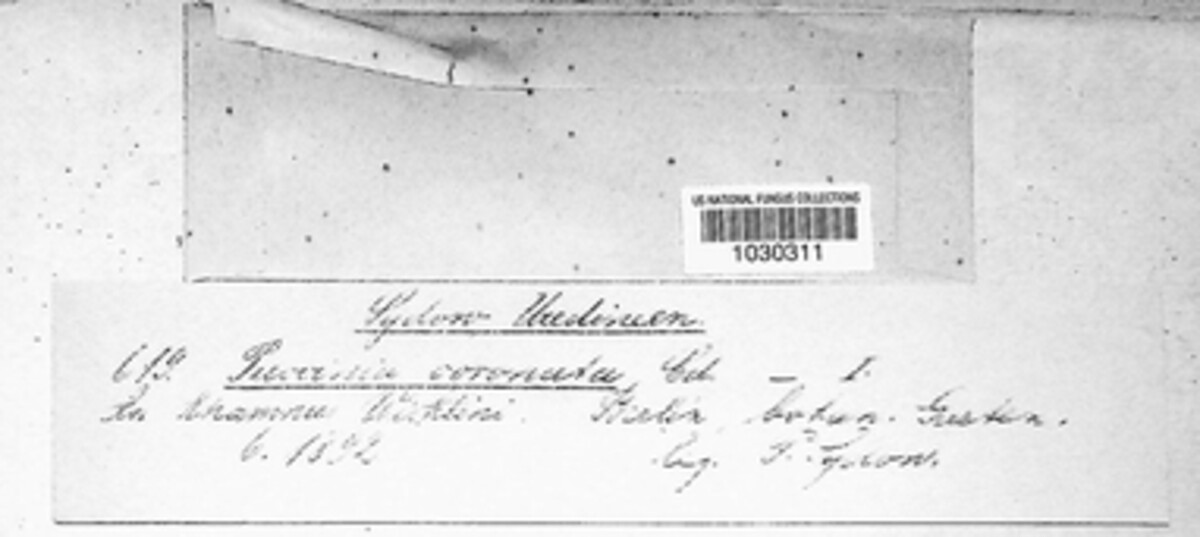 US NATIONAL FUNGUS COLLECTIONS
1030311
Sydow, Uredineen
619. Puccinia coronata Cd. – I.
In Rhamnus Berlin, botan. Garten.
6. 1892 leg. P. Sydow.